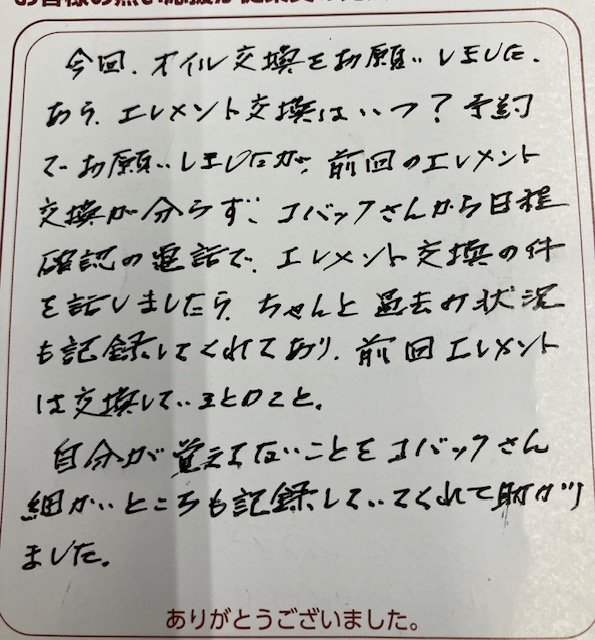 今回、オイル交換をお願いしました。
あっ、エレメント交換はいつ？予約
でお願いしましたが、前回のエレメント
交換が分らず、コバックさんから日程
確認の電話で、エレメント交換の件
を話しましたら、ちゃんと過去の状況
も記録してくれており、前回エレメント
は交換していますとのこと。
自分が覚えてないことをコバックさん
細かいところも記録していてくれて助かり
ました。
ありがとうございました。